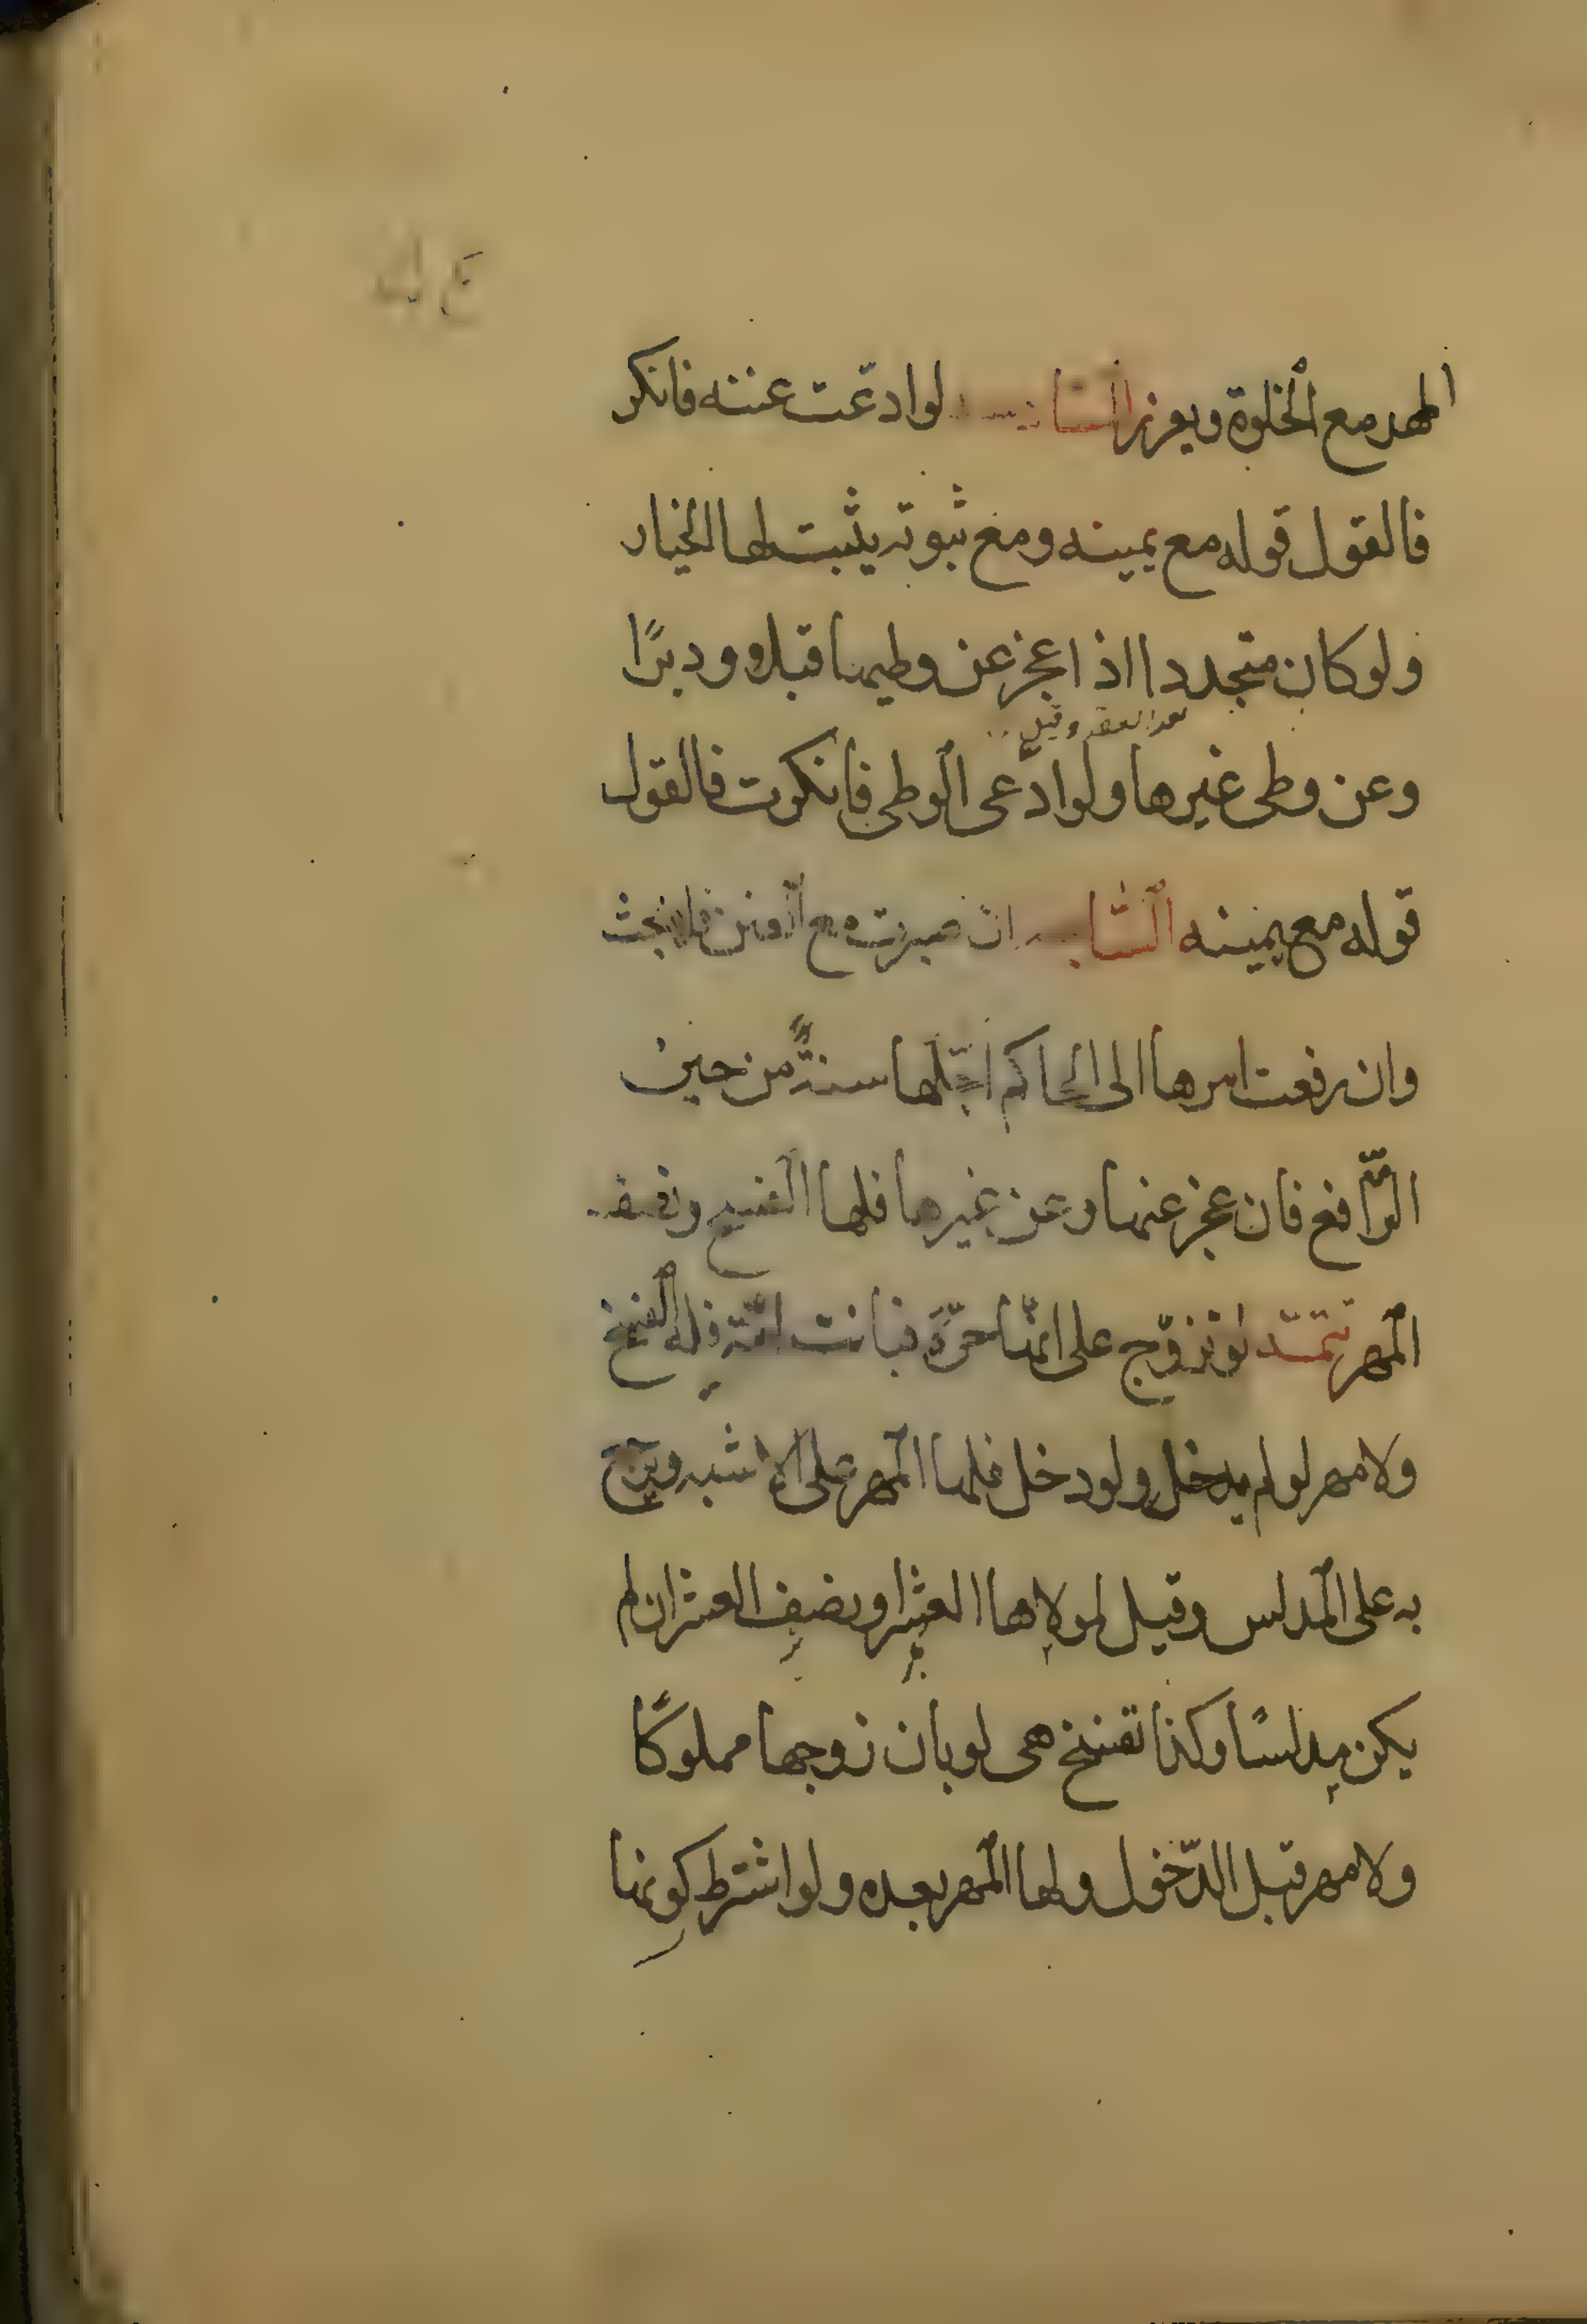 المهر مع الخلوة ويعزر السادسة لو ادّعت عننه فانكر
فالقول قوله مع يمينه ومع ثبوته يثبت لها الخيار
ولو كان متجددا اذا عجز عن وطيها قبلا ودبرًا
بعد العقد وقيل
وعن وطى غيرها ولو ادّعى الوطى فانكرت فالقول
قوله مع يمينه السّابعة ان صبرت مع العنن فلا بحث
وان رفعت امرها الى الحاكم اجّلها سنةً من حين
التّرافع فان عجز عنها وعن غيرها فلها الفسخ ونصف
المهر تتمّة لو تزوّج على انّها حرّة فبانت امة فله الفسخ
ولا مهر لو لم يدخل ولو دخل فلها المهر على الاشبه ويرجع
به على المدلس وقيل لمولاها العشر او نصف العشر ان لم
يكن مدلسًا وكذا تفسخ هى لو بان زوجها مملوكًا
ولا مهر قبل الدّخول ولها المهر بعده ولو اشترط كونها